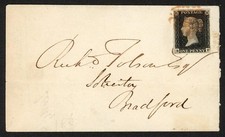 POSTAGE
ONE PENNY
Richd Tolson Esqr
Solicitor
Bradford